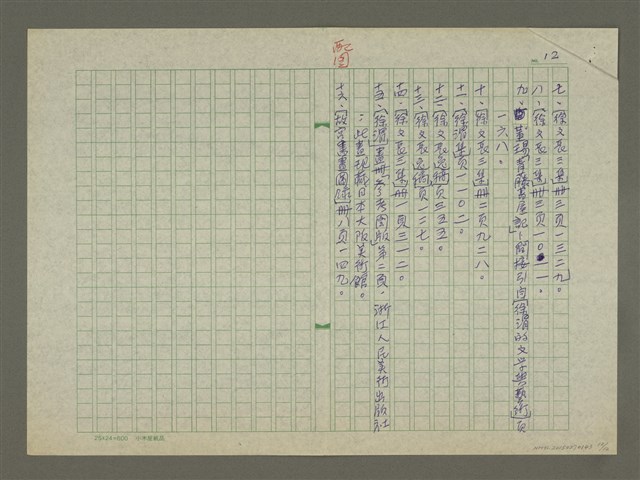 12
七、「徐文長三集」冊三頁一三二九。
八、「徐文長三集」冊三頁一〇一一。
九、董瑒「青藤書屋記」,間接引自「徐渭的文學與藝術」頁
一六八。
十、「徐文長三集」冊二頁九二八。
十一、「徐渭集」頁一一〇二。
十二、「徐文長逸稿」頁三五五。
十三、「徐文長逸稿」頁一二七。
十四、「徐文長三集」冊一頁三一二。
十五、「徐渭畫冊」參考圖版第二頁,浙江人民美術出版社
；此畫現藏日本大阪美術館。
十六、「故宮書畫圖錄」冊八頁一四九。
配圖
25X24=600